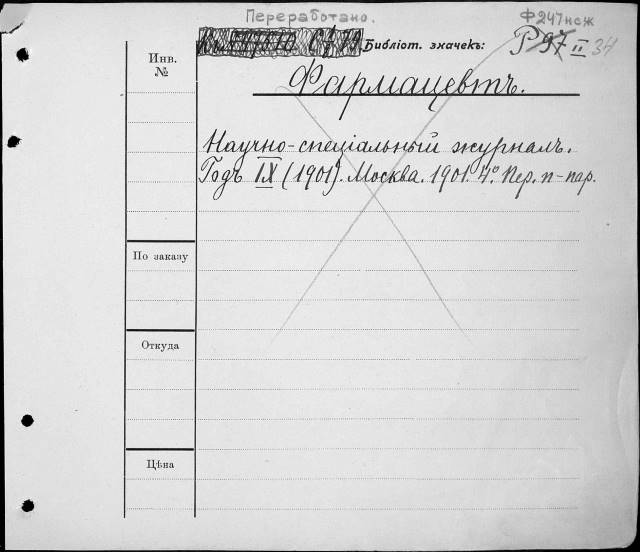 Переработано.
Ф 247 нсж
Библіот. значекъ: Р 97 II 34
Инв. №
Фармацевтъ.
Научно-спеціальный журналъ.
Годъ IX (1901). Москва. 1901. 4°. Пер. п-пар.
По заказу
Откуда
Цѣна